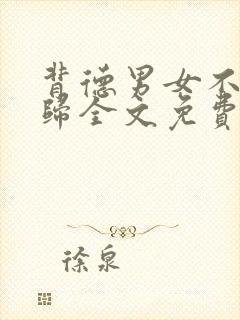 背德男女不
歸全文免費
徐泉